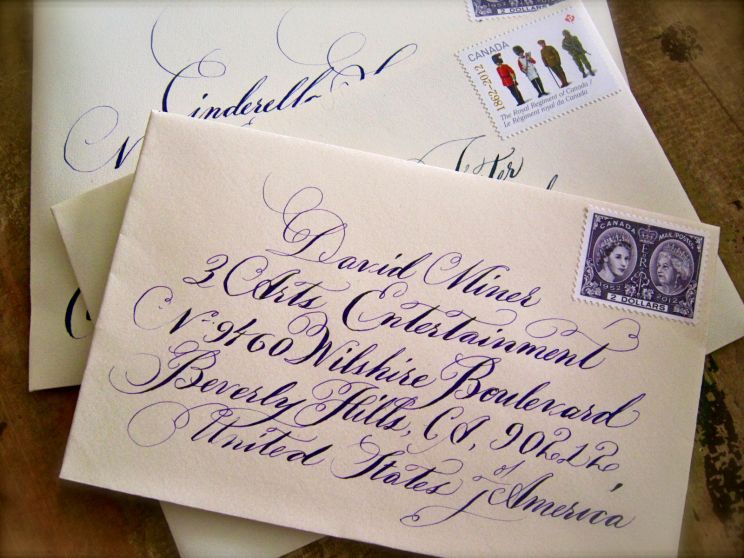 2 DOLLARS
CANADA
1862-2012
The Royal Regiment of Canada /
Le Régiment royal du Canada
P
David Miner
3 Arts Entertainment
No 9460 Wilshire Boulevard
Beverly Hills, CA, 90212,
United States of America
CANADA
MAIL/POSTES
1952
2012
2 DOLLARS